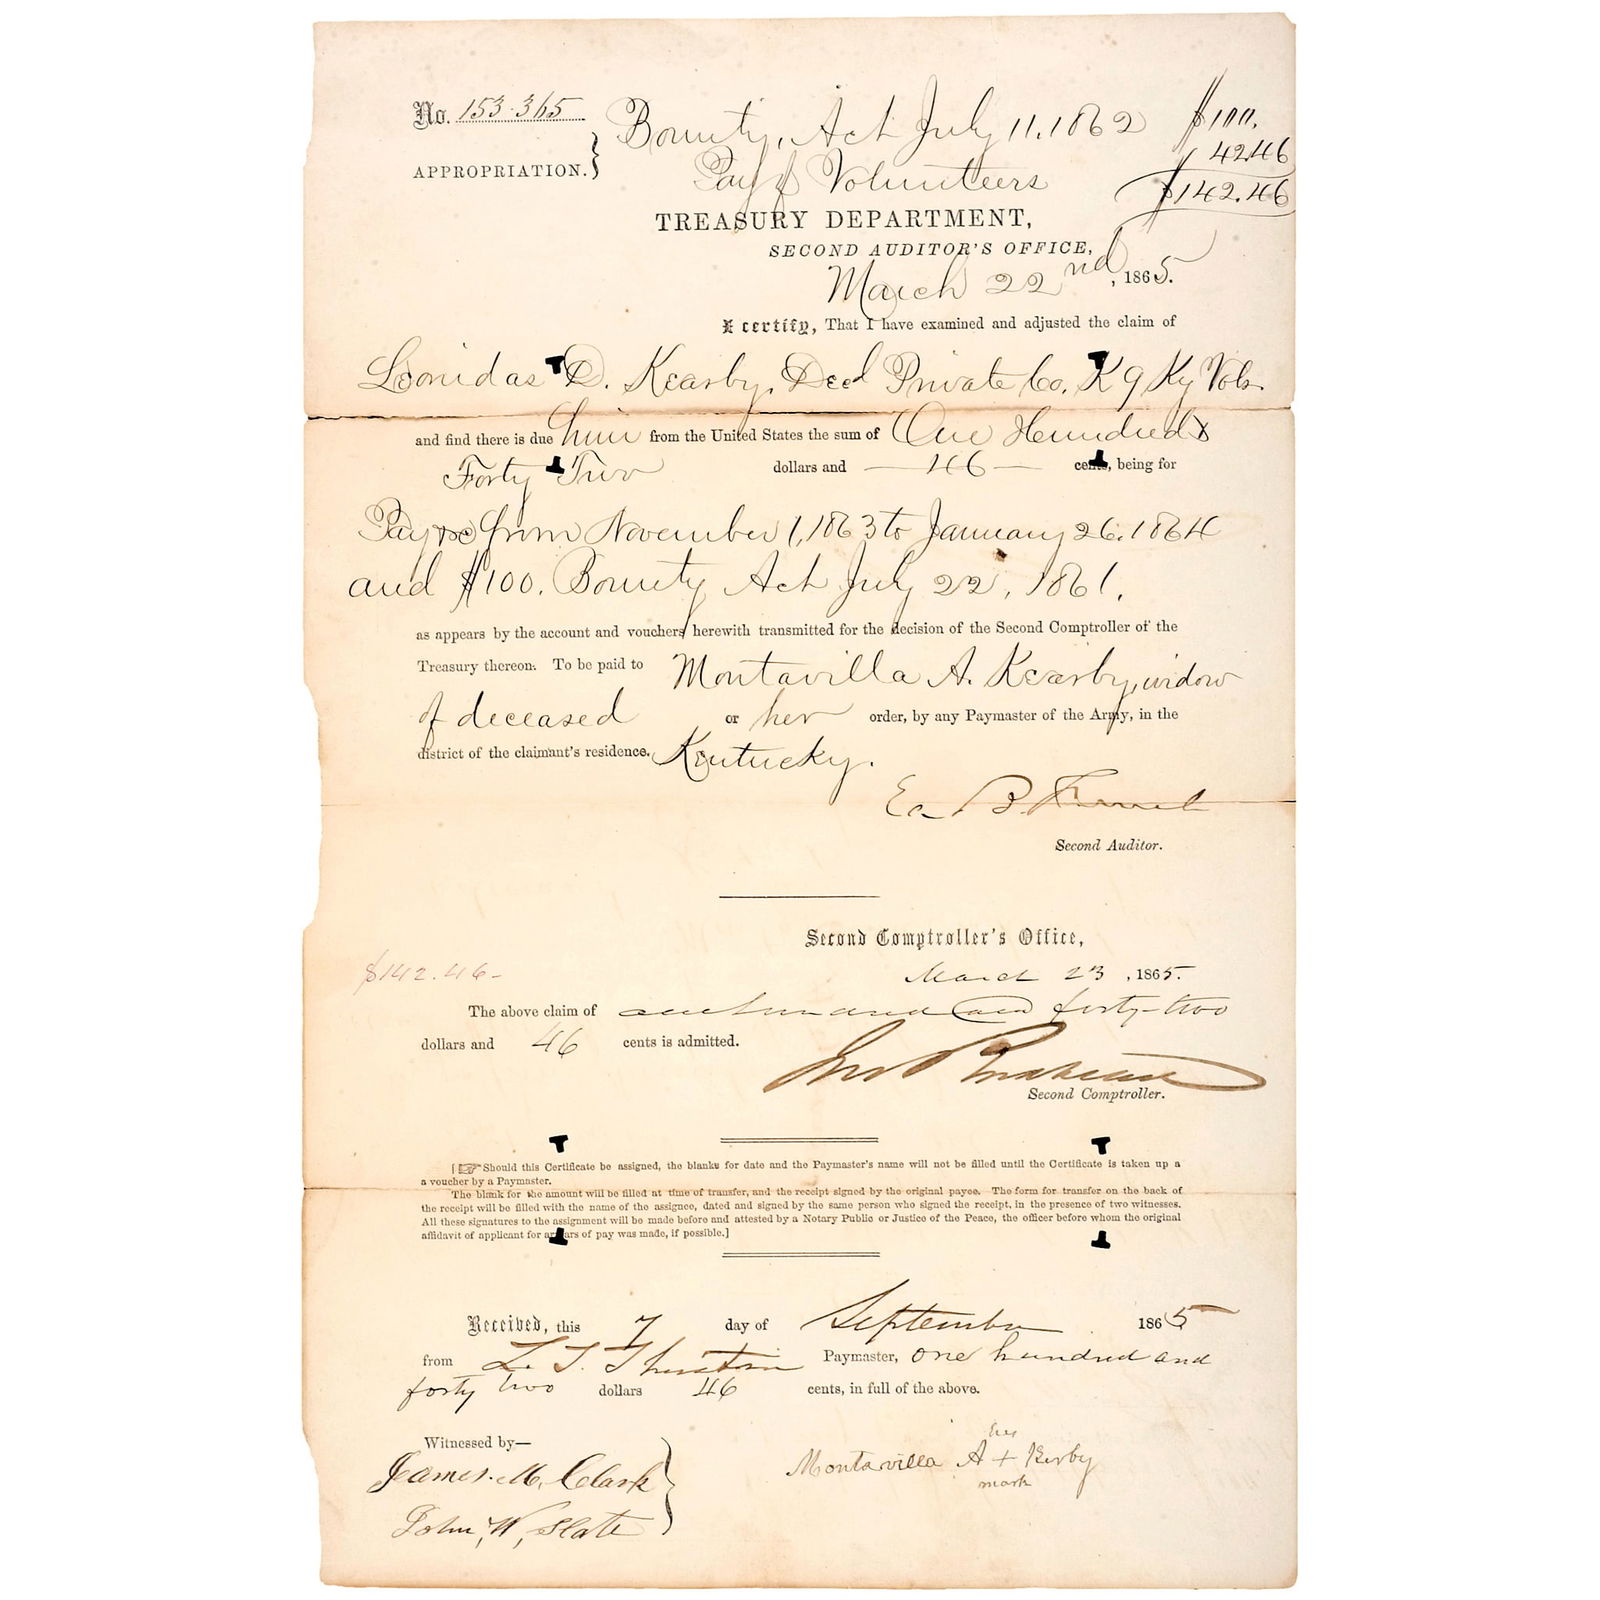 No. 153.365
Bounty, Act July 11. 1862
$100.
42.46
APPROPRIATION.}
Pay of Volunteers
$142.46
TREASURY DEPARTMENT,
SECOND AUDITOR'S OFFICE,
March 22nd, 1865.
I certify, That I have examined and adjusted the claim of
Leonidas D. Kearby, Decd Private Co. K 9 Ky Vols.
and find there is due him from the United States the sum of One Hundred &
Forty Two dollars and — 46 — cents, being for
Pay &c from November 1, 1863 to January 26. 1864
and $100. Bounty Act July 22, 1861.
as appears by the account and vouchers herewith transmitted for the decision of the Second Comptroller of the
Treasury thereon. To be paid to Montavilla A. Kearby, widow
of deceased or her order, by any Paymaster of the Army, in the
district of the claimant's residence. Kentucky.
Second Auditor.
Second Comptroller's Office,
$142.46-
March 23, 1865.
The above claim of one hundred and forty-two
dollars and 46 cents is admitted.
Second Comptroller.
[☞Should this Certificate be assigned, the blanks for date and the Paymaster's name will not be filled until the Certificate is taken up a
a voucher by a Paymaster.
The blank for the amount will be filled at time of transfer, and the receipt signed by the original payee. The form for transfer on the back of
the receipt will be filled with the name of the assignee, dated and signed by the same person who signed the receipt, in the presence of two witnesses.
All these signatures to the assignment will be made before and attested by a Notary Public or Justice of the Peace, the officer before whom the original
affidavit of applicant for arrears of pay was made, if possible.]
Received, this 7 day of September 1865
from L. T. Thurston Paymaster, one hundred and
forty two dollars 46 cents, in full of the above.
Witnessed by—
James. M. Clark
John, W, Slate
her
Montavilla A + Kerby
mark